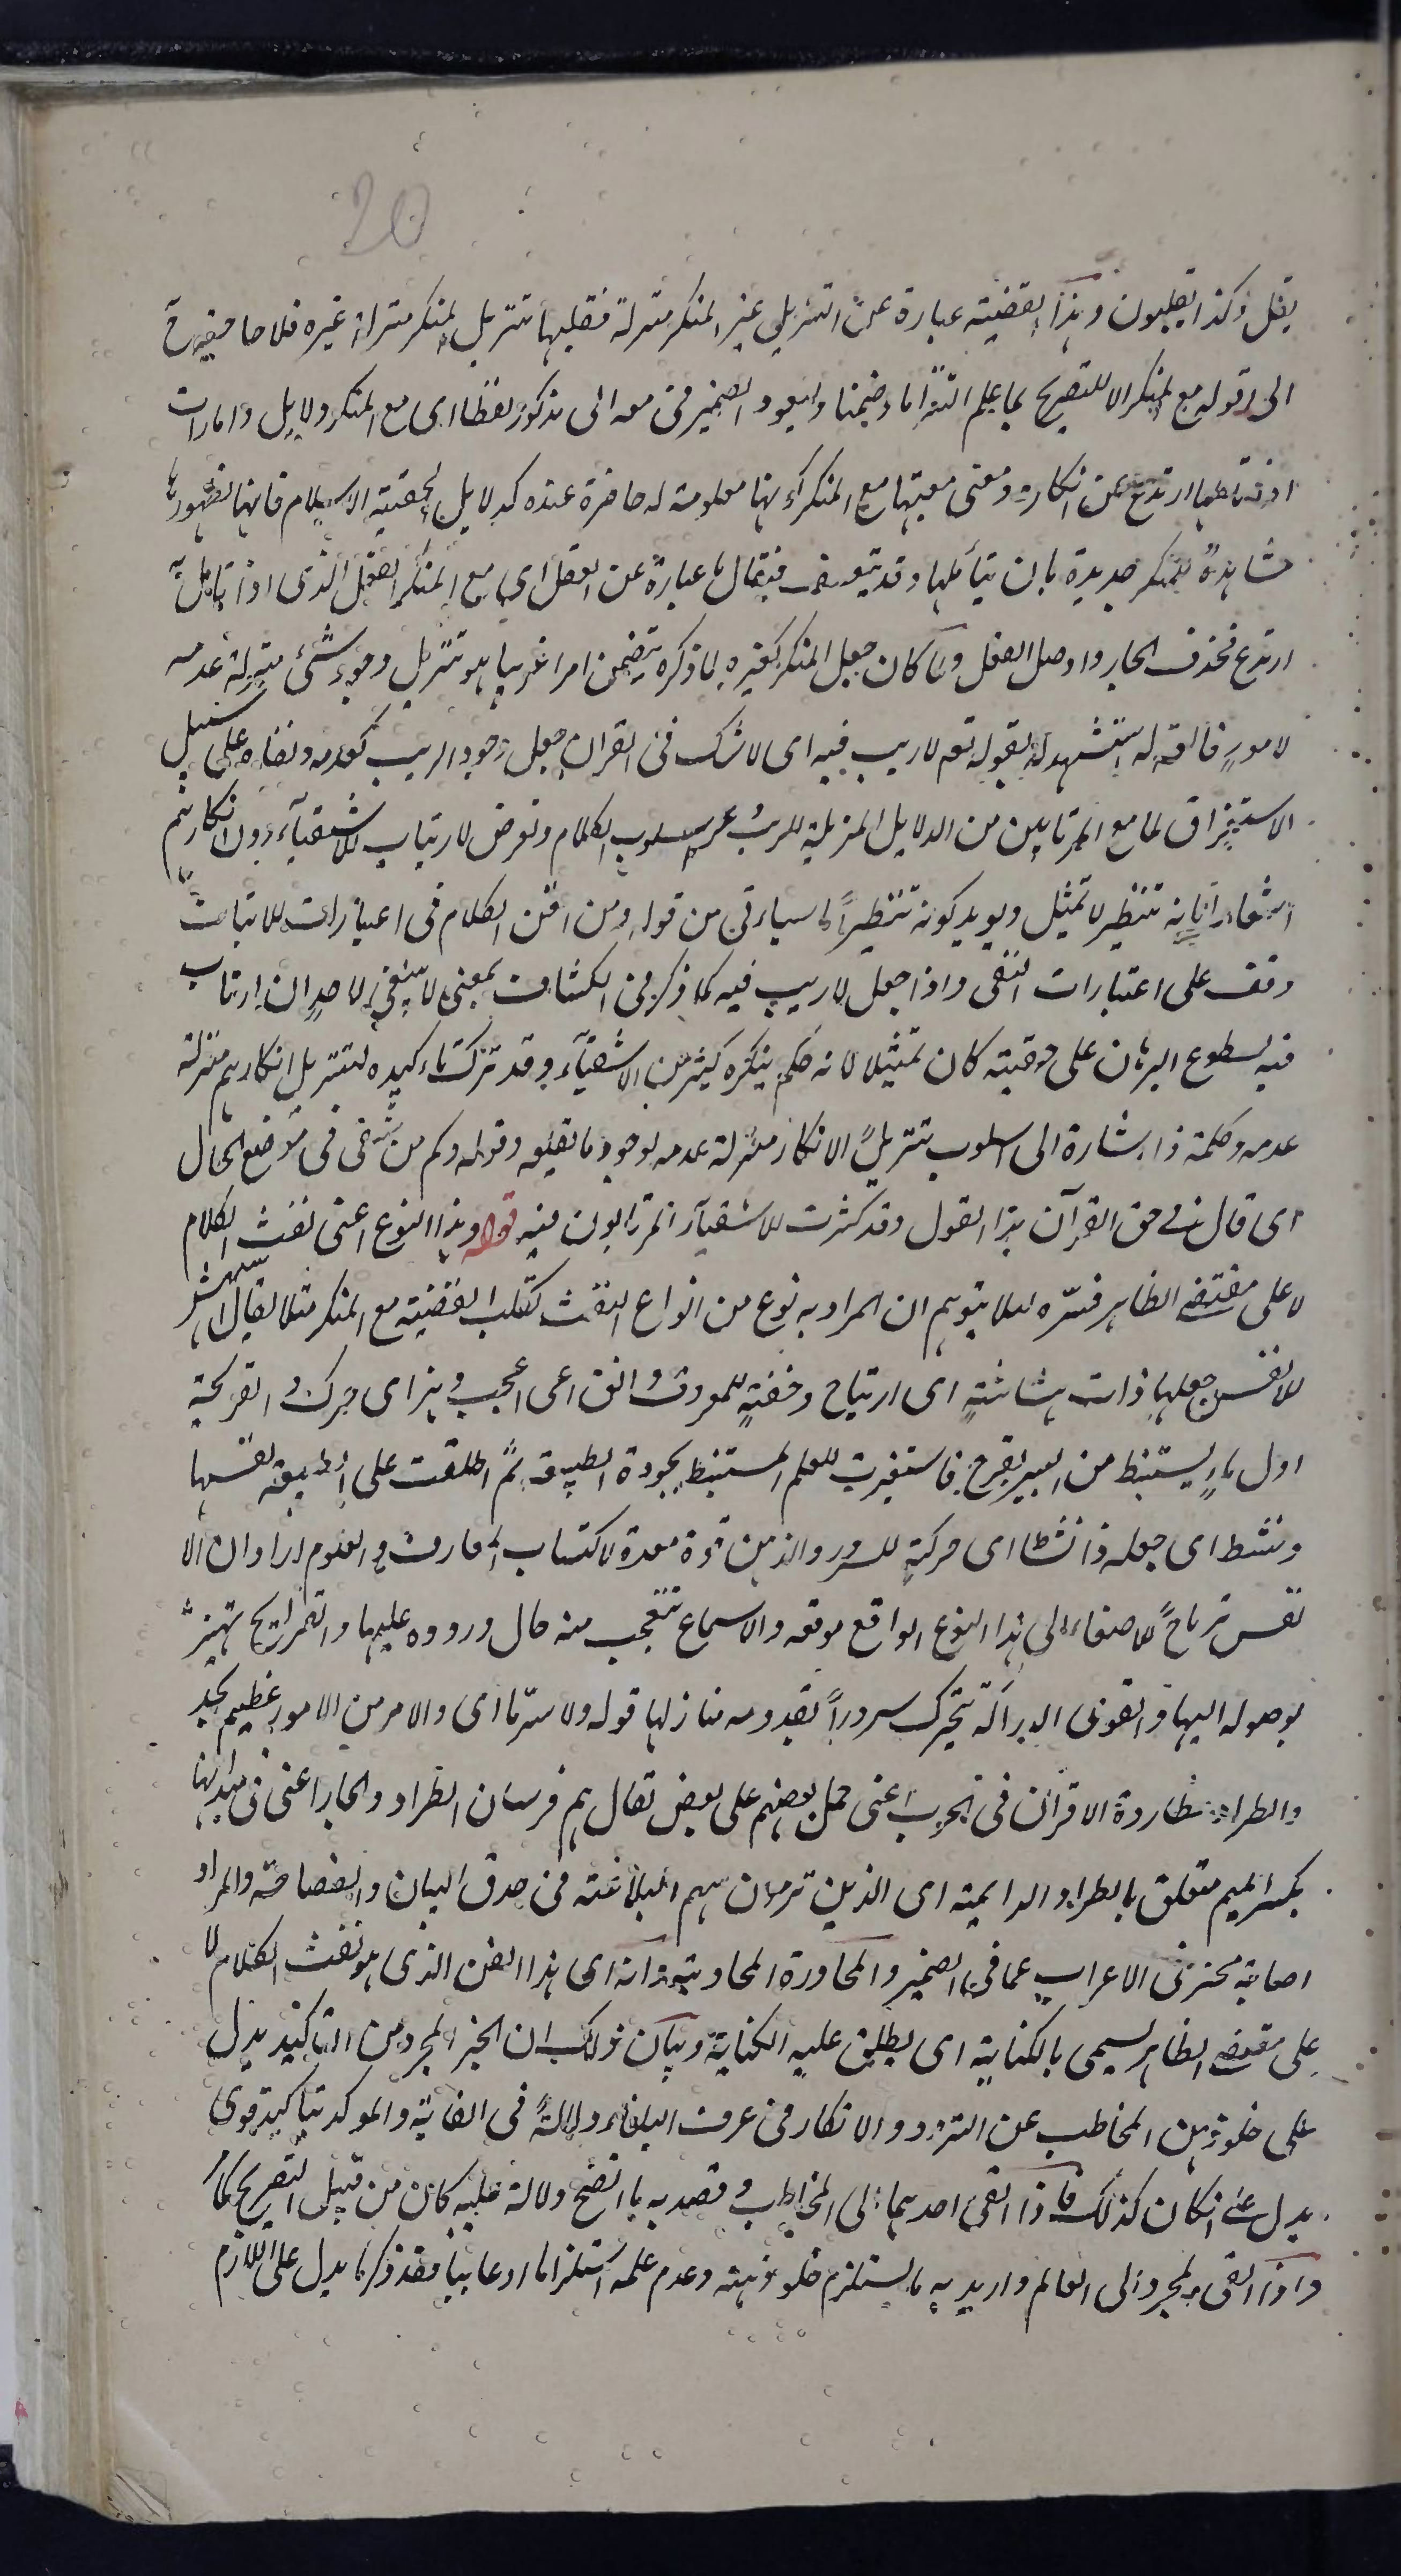 20
يقل وكذا يقلبون وهذا القضية عبارة عن التنزيل غير المنكر منزلة فقلبها تنزيل المنكر منزلة غيره فلا حاجة ح
الى قوله مع المنكر الا للتصريح بما علم التزاما وضمنا وليعود الضمير فى معه الى مذكور لفظا اى مع المنكر دلايل وامارات
اذا تاملها ارتدع عن انكاره ومعنى معيتها مع المنكر انها معلومة له حاضرة عنده كدلايل لحقية الاسلام فانها لظهورها
مشاهدة للمنكر جديدة بان يتأملها وقد يتعسف فيقال ما عبارة عن العقل اى مع المنكر العقل الذى اذا تامل به
ارتدع فحذف الجار واوصل الفعل ولما كان جعل المنكر كغيره لما ذكره يتضمن امرا غريبا هو تنزيل وجود شئ منزلة عدمه
لامور فائقة له استشهد له بقوله تع لا ريب فيه اى لا شك فى القران جعل وجود الريب كعدمه ونفاه على سبيل
الاستغراق لما مع المرتابين من الدلايل المزيلة للريب اسلوب الكلام وتعرض لارتياب الاشقيآء دون انكارهم
اشعارا بانه تنظير لا تمثيل ويويد كونه تنظيراً ما سياتى من قوله ومن اتقن الكلام فى اعتبارات الاثبات
وقف على اعتبارات النفى واذا جعل لا ريب فيه كما ذكر فى الكشاف بمعنى لا ينبغى لاحد ان يرتاب
فيه لسطوع البرهان على حقيته كان تمثيلا لانه حكم ينكره كثير من الاشقيآء وقد ترك تاكيده لتنزيل انكارهم منزلة
عدمه وكلمة ذا اشارة الى اسلوب تنزيل الانكار منزلة عدمه لوجود ما يقلعه وقوله وكم من شقى فى موضع الحال
اى قال فى حق القرآن هذا القول وقد كثرت الاشقيآء المرتابون فيه قوله وهذا النوع اعنى نفث الكلام
لا على مقتضى الظاهر فسّره لئلا يتوهم ان المراد به نوع من انواع النفث كقلب القضية مع المنكر مثلا يقال استهش
الانفس جعلها ذات هشاشة اى ارتياح وخفة للمعروف وانق اى اعجب وهز اى حرك والقريحة
اول ماء يستنبط من البير بقرح فاستعيرت للعلم المستنبط بجودة الطبيعة ثم اطلقت على الطبيعة نفسها
ونشط اى جعله ذا نشاط اى حركة للسرور والذهن قوة معدة لاكتساب المعارف والعلوم اراد ان الا
نفس ترتاح للاصغاء الى هذا النوع الواقع موقعه والاسماع تتعجب منه حال وروده عليها والقرايح تهتز
بوصوله اليها والقوى الدراكة تتحرك سروراً بقدومه منازلها قوله ولامر ما اى والامر من الامور عظيم تجد
والطراد مطاردة الاقران فى الحرب اعنى حمل بعضهم على بعض تقال هم فرسان الطراد والجار اعنى فى ميدانها
بكسر الميم متعلق بالطراد الرامية اى الذين ترمون سهم البلاغة فى حدق البيان والفصاحة والمراد
اصابة محزى الاعراب عما فى الضمير والمحاورة المجاوبة وانه اى هذا الفن الذى هو نفث الكلام لا
على مقتضى الظاهر يسمى بالكناية اى يطلق عليه الكناية وبيان ذلك ان الخبر المجرد من التاكيد يدل
على خلو ذهن المخاطب عن التردد والانكار فى عرف البلغاء دلالة فى الغاية والموكد بتاكيد قوى
يدل على انكار كذلك فاذا القى احدهما الى المخاطب وقصد به ما اتضح دلالة عليه كان من قبيل التصريح
واذا القى المجرد الى العالم واريد به ما يستلزم خلو ذهنه وعدم علمه استلزاما ادعائيا فقد ذكر ما يدل على اللازم